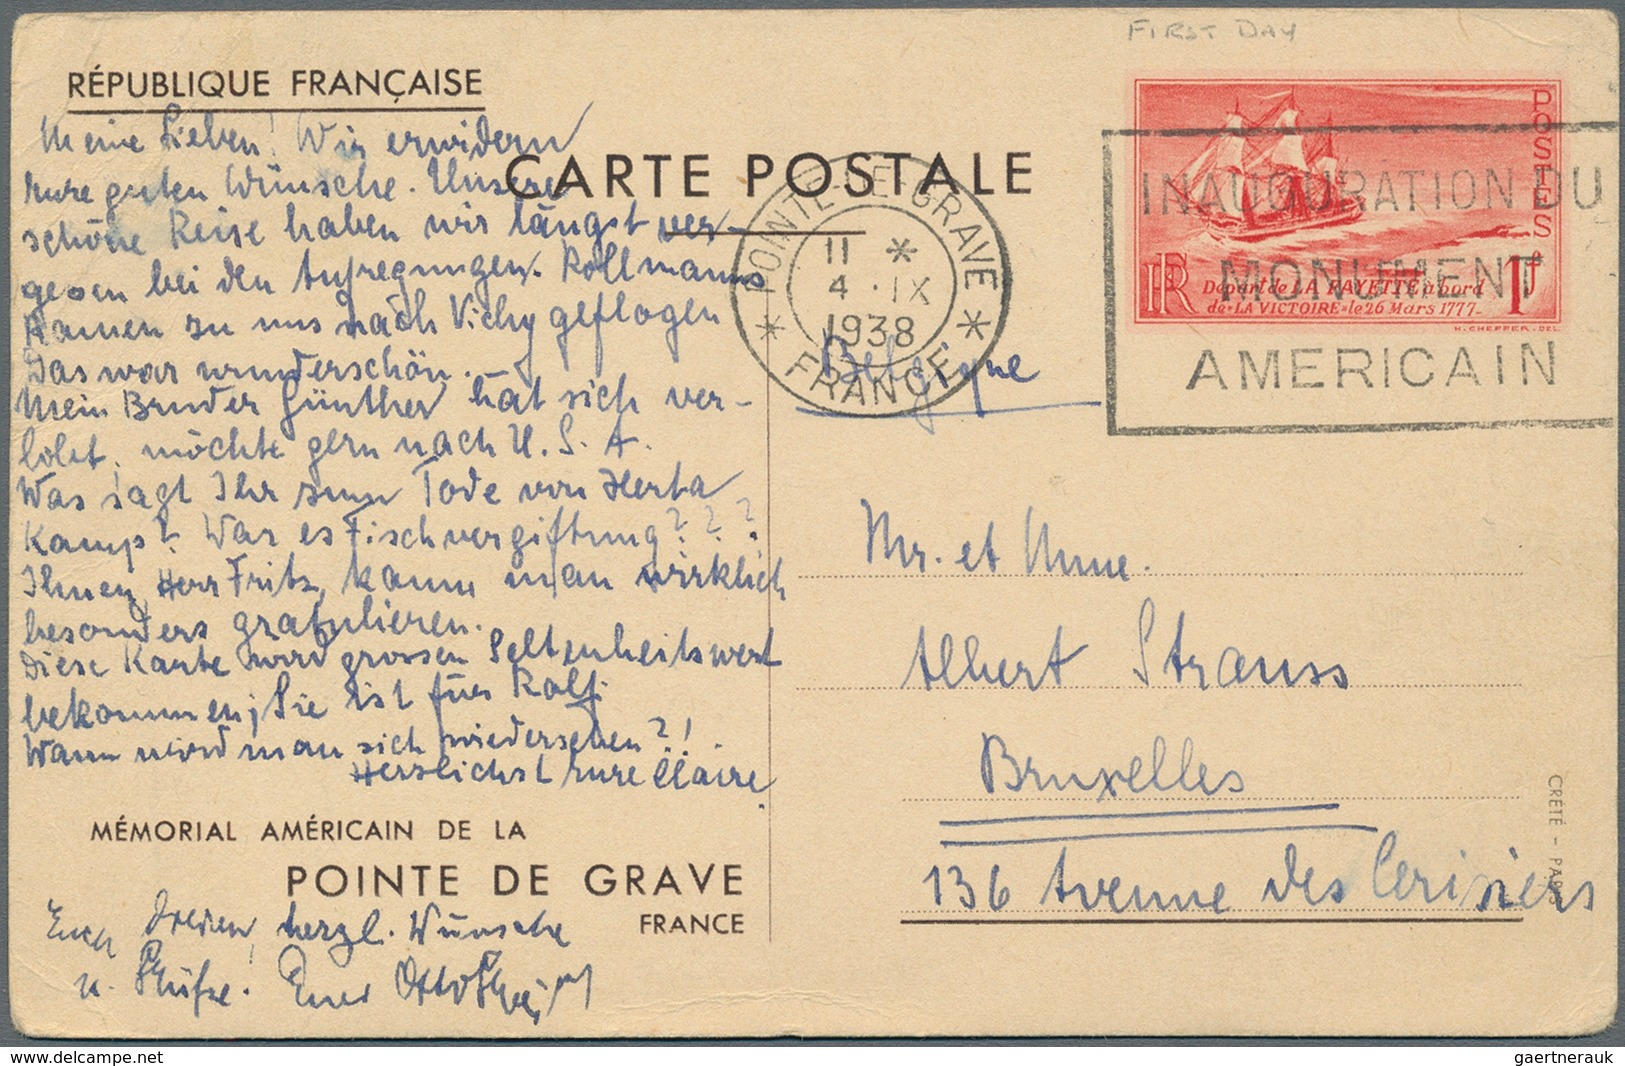 FIRST DAY
RÉPUBLIQUE FRANÇAISE
CARTE POSTALE
Meine Lieben! Wir erwidern
Eure guten Wünsche. Unsere
schöne Reise haben wir längst ver-
gessen bei den Aufregungen. Rollmanns
kamen zu uns nach Vichy geflogen
Das war wunderschön.
Mein Bruder Günther hat sich ver-
lobt, möchte gern nach U. S. A.
Was sagt Ihr zum Tode von Herta
Kamp? War es Fischvergiftung???
Ihnen, Herr Fritz, kann man wirklich
besonders gratulieren.
Diese Karte wird grossen Seltenheitswert
bekommen; Sie ist für Rolf.
Wann wird man sich wiedersehen?!
Herzlichst Eure Claire
MÉMORIAL AMÉRICAIN DE LA
POINTE DE GRAVE
FRANCE
Euch Dreien herzl. Wünsche
u. Grüße. Euer Otto
POINTE-DE-GRAVE
11 *
4 · IX
1938
* FRANCE *
INAUGURATION DU
MONUMENT
AMERICAIN
POSTES
RF
1F
Départ de LA FAYETTE à bord
de «LA VICTOIRE» le 26 Mars 1777-
H. CHEFFER. DEL.
Belgique
Mr. et Mme.
Albert Strauss
Bruxelles
136 Avenue des Cerisiers
CRÉTÉ - PARIS
www.delcampe.net
gaertnerauk